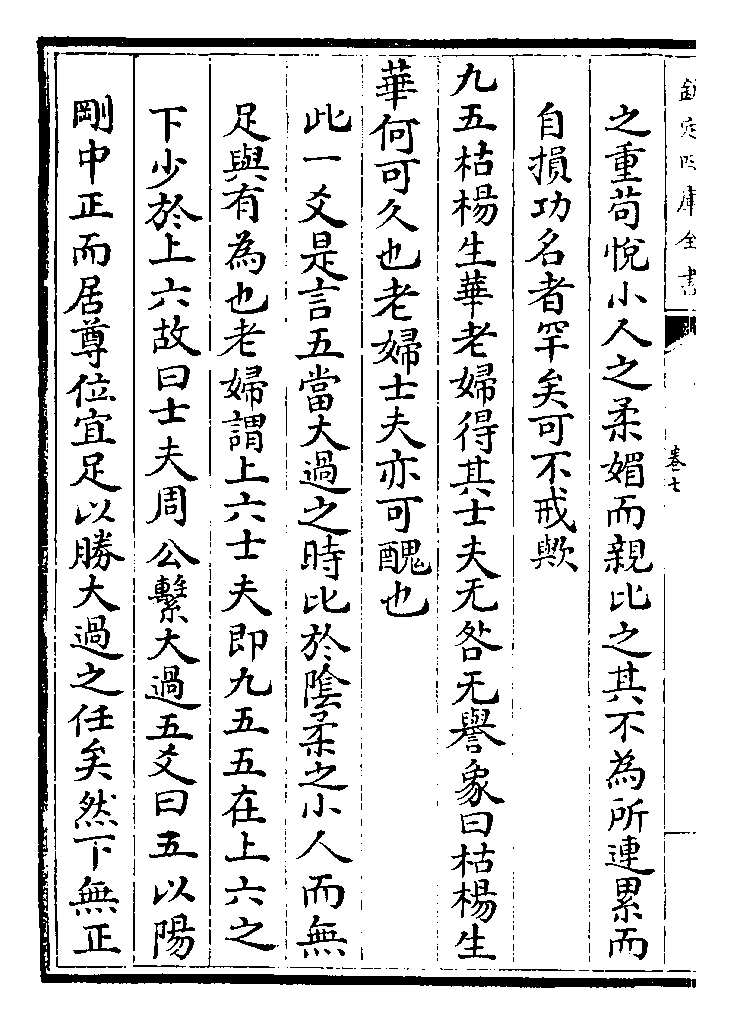 欽定四庫全書
卷七
之重苟悅小人之柔媚而親比之其不為所連累而
自損功名者罕矣可不戒歟
九五枯楊生華老婦得其士夫无咎无譽象曰枯楊生
華何可久也老婦士夫亦可醜也
此一爻是言五當大過之時比於陰柔之小人而無
足與有為也老婦謂上六士夫即九五五在上六之
下少於上六故曰士夫周公繫大過五爻曰五以陽
剛中正而居尊位宜足以勝大過之任矣然下無正